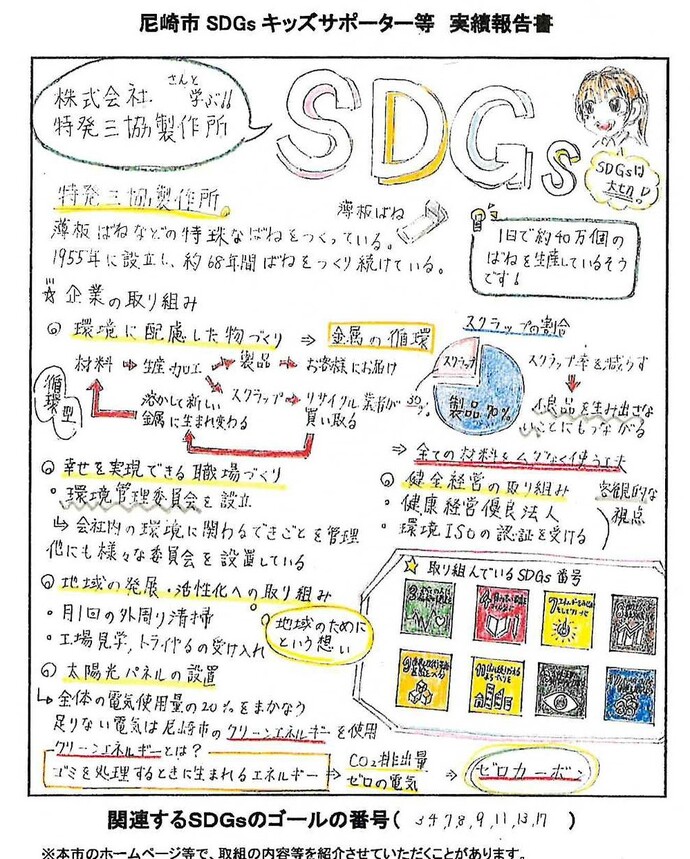 尼崎市 SDGs キッズサポーター等 実績報告書
株式会社 さんと学ぶ!!
特発三協製作所
SDGs
SDGsは
大切!
特発三協製作所
薄板ばね
薄板ばねなどの特殊なばねをつくっている。
1955年に設立し、約68年間ばねをつくり続けている。
1日で約40万個の
ばねを生産しているそう
です!
☆企業の取り組み
◎環境に配慮した物づくり ⇒ 金属の循環
材料 → 生産加工 → 製品 → お客様にお届け
スクラップ → リサイクル業者が
買い取る
溶かして新しい
金属に生まれ変わる
循環型
スクラップの割合
スクラップ
30%
製品 70%
スクラップ率を減らす
不良品を生み出さな
いことにもつながる
⇒ 全ての材料をムダなく使う工夫
◎幸せを実現できる職場づくり
・環境管理委員会を設立
↳会社内の環境に関わるできごとを管理
他にも様々な委員会を設置している
◎健全経営の取り組み
・健康経営優良法人
・環境ISOの認証を受ける
客観的な
視点
◎地域の発展・活性化への取り組み
・月1回の外周り清掃
・工場見学,トライやるの受け入れ
地域のために
という想い
☆取り組んでいるSDGs番号
◎太陽光パネルの設置
↳全体の電気使用量の20%をまかなう
足りない電気は尼崎市のグリーンエネルギーを使用
グリーンエネルギーとは?
ゴミを処理するときに生まれるエネルギー → CO2排出量
ゼロの電気 ⇒ ゼロカーボン
関連するSDGsのゴールの番号( 3 4,7,8,9,11,13,17 )
※本市のホームページ等で、取組の内容等を紹介させていただくことがあります。